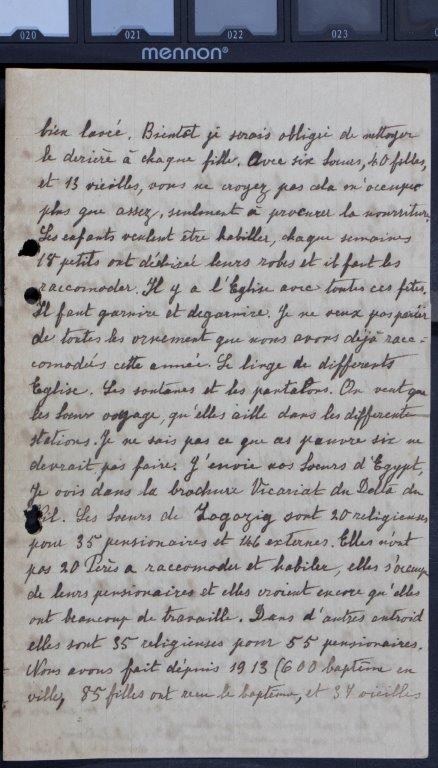 020 021 022 023
mennon®
bien lavée. Bientot je serais obligée de nettoyer
le derière à chaque fille. Avec six Soeurs, 40 filles,
et 13 vieilles, vous ne croyez pas cela m'occupe
plus que assez, seulment a procurer la nourriture.
Les enfants veulent être habiller, chaque semaines
18 petits ont déchiseé leurs robes et il faut les
raccomoder. Il y a l'Eglise avec toutes ces fêtes.
Il faut garnire et degarnire. Je ne veux pas parler
de toutes les ornement que nous avons déjà racc-
comodées cette année. Le linge de differents
Eglise. Les soutanes et les pantalons. On veut que
les Soeur voyage, qu'elles aille dans les differente
stations. Je ne sais pas ce que as pauvre six ne
devrait pas faire. J'envie nos Soeurs d'Egypt,
Je vois dans la brochure Vicariat du Delta du
Nil. Les Soeurs de Zagazig sont 20 religieuses
pour 35 pensionaires et 146 externes. Elles n'ont
pas 20 Pères a raccomoder et habiler, elles s'occupe
de leurs pensionaires et elles croient encore qu'elles
ont beaucoup de travaille. Dans d'autres entroid
elles sont 35 religieuses pour 55 pensionaires.
Nous avons fait dépuis 1913 (600 baptême en
ville, 85 filles ont reçu le baptême, et 34 vieilles